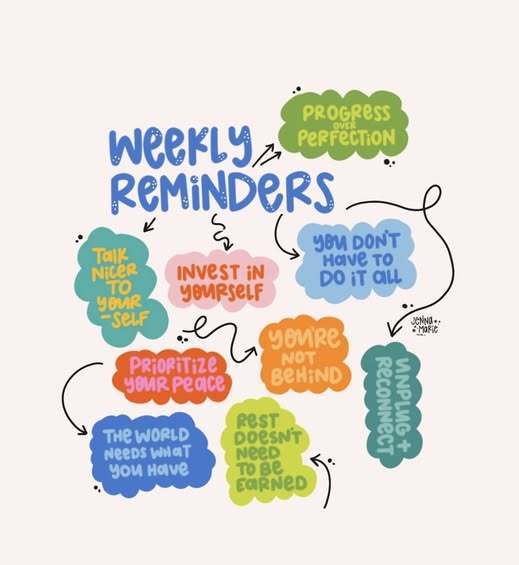 WEEKLY
REMINDERS
PROGRESS
OVER
PERFECTION
TALK
NICER
TO
YOUR
-SELF
INVEST IN
YOURSELF
YOU DON'T
HAVE TO
DO IT ALL
JENNA
MARIE
PRIORITIZE
YOUR PEACE
YOU'RE
NOT
BEHIND
UNPLUG +
RECONNECT
THE WORLD
NEEDS WHAT
YOU HAVE
REST
DOESN'T
NEED
TO BE
EARNED